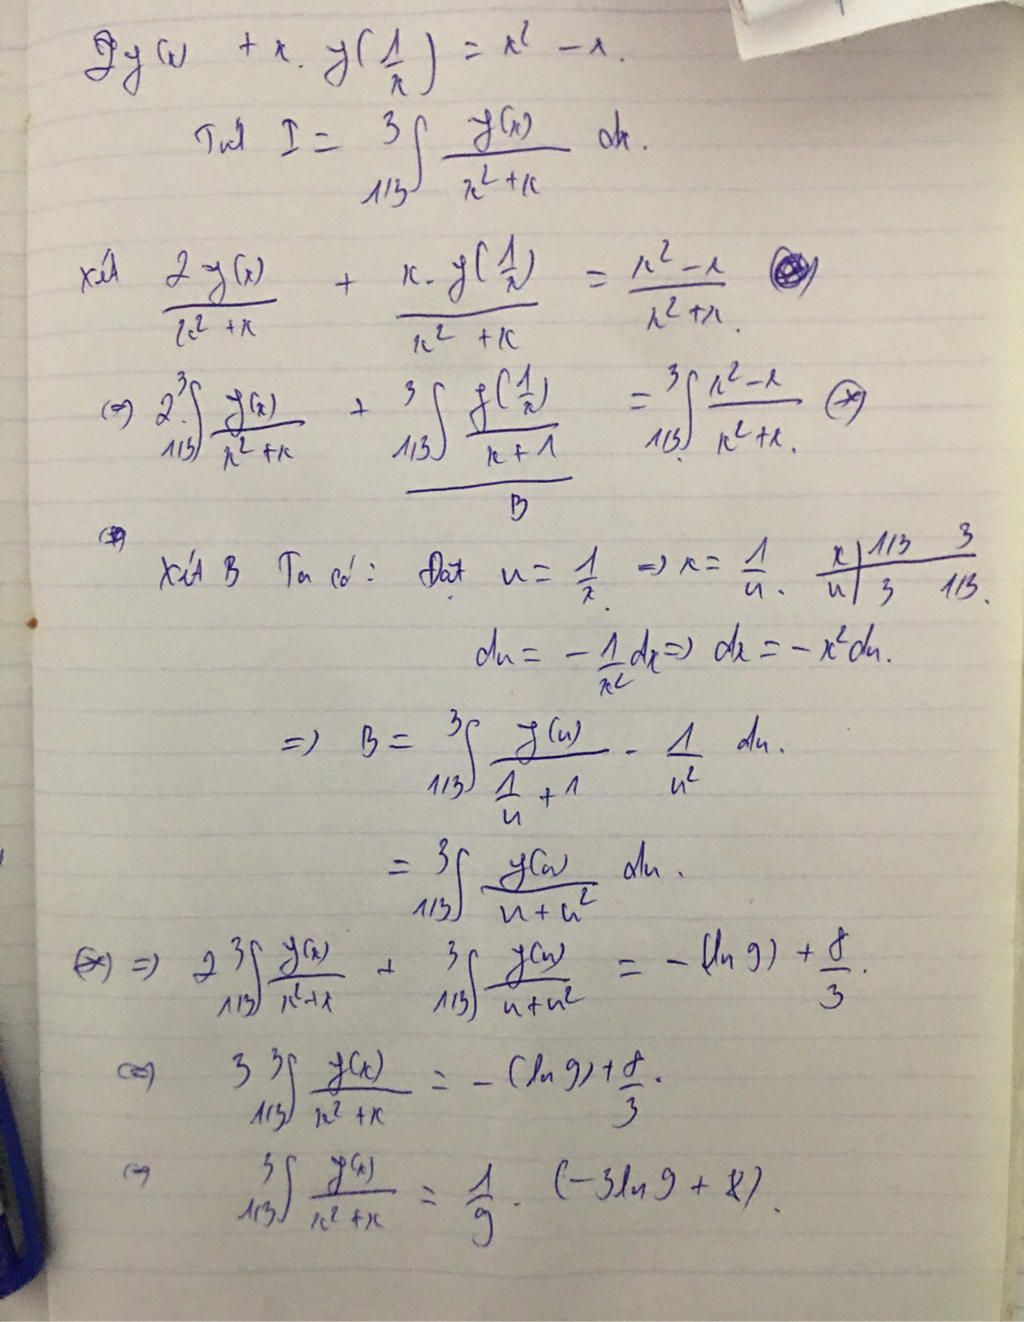 2y(x) + x. y(1/x) = x² - x.
Tính I = ³∫₁/₃ y(x)/(x²+x) dx.
Xét 2y(x)/(x²+x) + x.y(1/x)/(x²+x) = (x²-x)/(x²+x).
(=) 2.³∫₁/₃ y(x)/(x²+x) + ³∫₁/₃ y(1/x)/(x+1) = ³∫₁/₃ (x²-x)/(x²+x). (*)
B
Xét B Ta có: Đặt u = 1/x. => x = 1/u. x | 1/3 3
u | 3 1/3.
du = - 1/x² dx => dx = - x² du.
=> B = ³∫₁/₃ y(u)/(1/u + 1) . 1/u² du.
= ³∫₁/₃ y(u)/(u+u²) du.
(*) => 2 ³∫₁/₃ y(x)/(x²+x) + ³∫₁/₃ y(u)/(u+u²) = - (ln 9) + 8/3.
(=) 3 ³∫₁/₃ y(x)/(x²+x) = - (ln 9) + 8/3.
(=) ³∫₁/₃ y(x)/(x²+x) = 1/9 . (-3 ln 9 + 8).